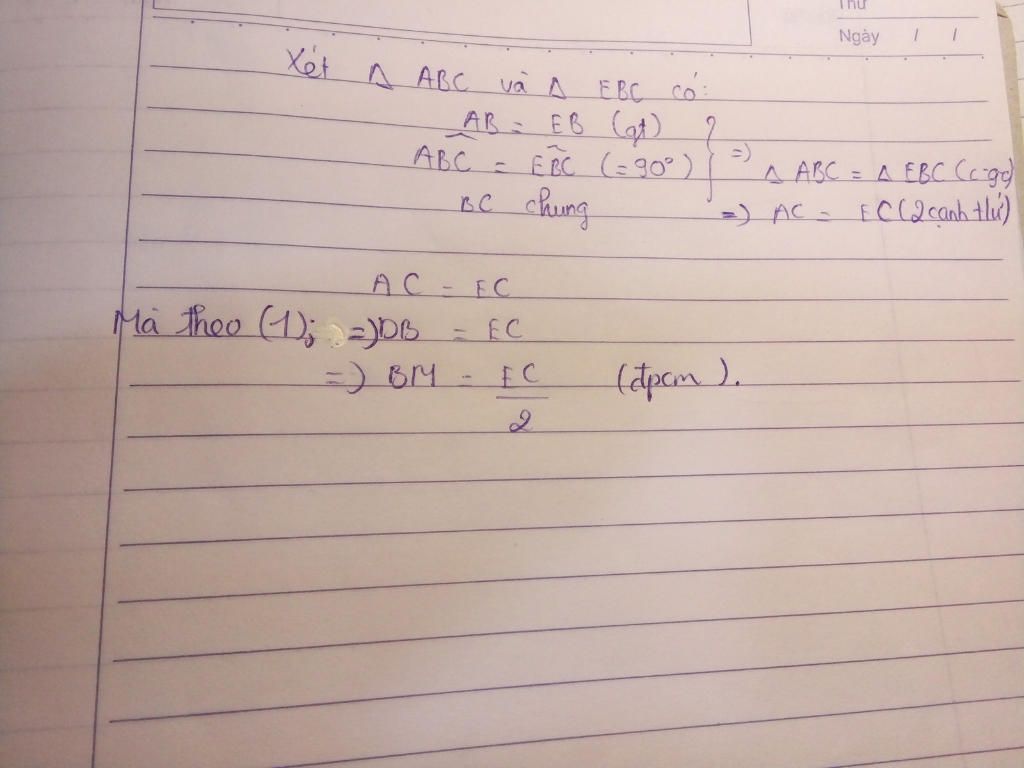 Thứ
Ngày / /
Xét Δ ABC và Δ EBC có:
AB = EB (gt)
ABC = EBC (=90°) } => Δ ABC = Δ EBC (c-gc)
BC chung => AC = EC (2 cạnh tứ)
AC = EC
Mà theo (1); =) DB = EC
=) BM = EC/2 (đpcm).